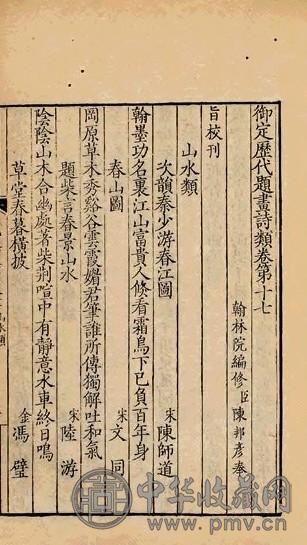 御定歷代題畫詩類卷第十七
翰林院編修臣陳邦彥奉
旨校刊
山水類
次韻秦少游春江圖
宋陳師道
翰墨功名裏江山富貴人倏看霜鳥下已負百年身
春山圖
宋文同
岡原草木秀谿谷雲霞媚君筆誰所傳獨解吐和氣
題柴言春景山水
宋陸游
陰陰山木合幽處著柴荆喧中有靜意水車終日鳴
草堂春暮橫披
金馮璧
中华收藏网
www.pmv.cn